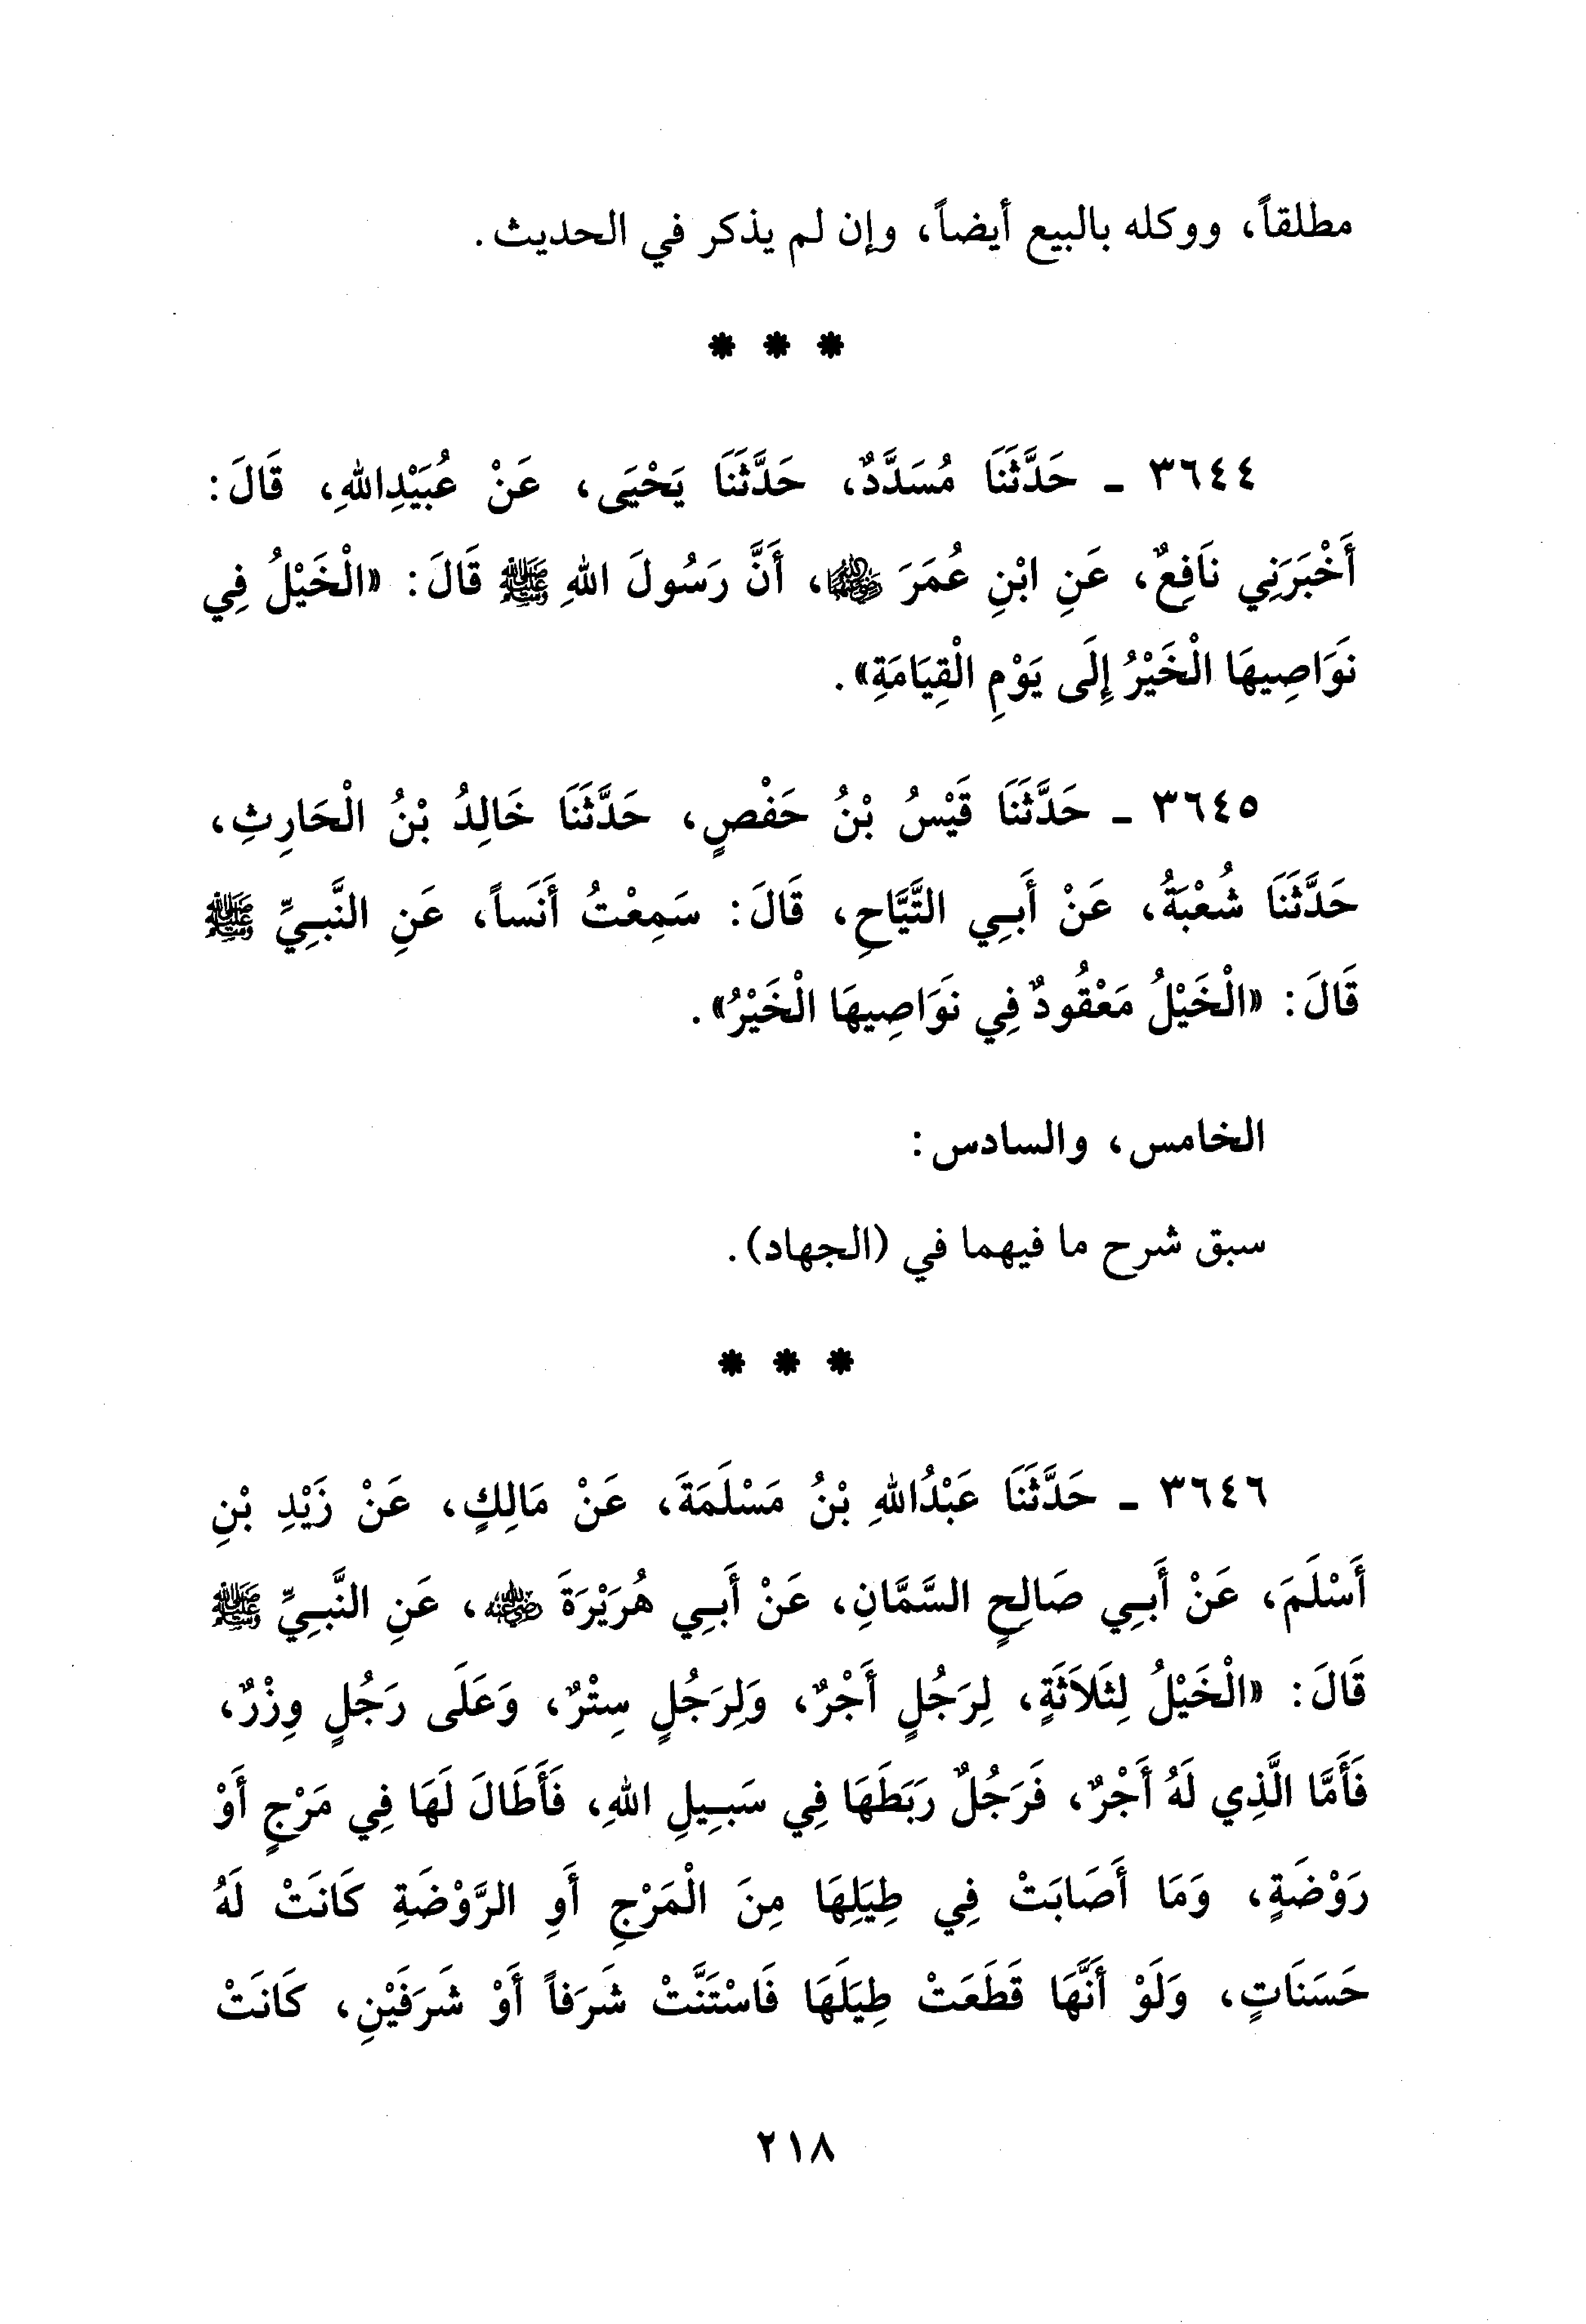 مطلقاً، ووكله بالبيع أيضاً، وإن لم يذكر في الحديث.
* * *
٣٦٤٤ ـ حَدَّثَنَا مُسَدَّدٌ، حَدَّثَنَا يَحْيَى، عَنْ عُبَيْدِاللهِ، قَالَ:
أَخْبَرَنِي نَافِعٌ، عَنِ ابْنِ عُمَرَ رضي الله عنهما، أَنَّ رَسُولَ اللهِ ﷺ قَالَ: «الْخَيْلُ فِي
نَوَاصِيهَا الْخَيْرُ إِلَى يَوْمِ الْقِيَامَةِ».
٣٦٤٥ ـ حَدَّثَنَا قَيْسُ بْنُ حَفْصٍ، حَدَّثَنَا خَالِدُ بْنُ الْحَارِثِ،
حَدَّثَنَا شُعْبَةُ، عَنْ أَبِي التَّيَّاحِ، قَالَ: سَمِعْتُ أَنَساً، عَنِ النَّبِيِّ ﷺ
قَالَ: «الْخَيْلُ مَعْقُودٌ فِي نَوَاصِيهَا الْخَيْرُ».
الخامس، والسادس:
سبق شرح ما فيهما في (الجهاد).
* * *
٣٦٤٦ ـ حَدَّثَنَا عَبْدُاللهِ بْنُ مَسْلَمَةَ، عَنْ مَالِكٍ، عَنْ زَيْدِ بْنِ
أَسْلَمَ، عَنْ أَبِي صَالِحٍ السَّمَّانِ، عَنْ أَبِي هُرَيْرَةَ رضي الله عنه، عَنِ النَّبِيِّ ﷺ
قَالَ: «الْخَيْلُ لِثَلاَثَةٍ، لِرَجُلٍ أَجْرٌ، وَلِرَجُلٍ سِتْرٌ، وَعَلَى رَجُلٍ وِزْرٌ،
فَأَمَّا الَّذِي لَهُ أَجْرٌ، فَرَجُلٌ رَبَطَهَا فِي سَبِيلِ اللهِ، فَأَطَالَ لَهَا فِي مَرْجٍ أَوْ
رَوْضَةٍ، وَمَا أَصَابَتْ فِي طِيَلِهَا مِنَ الْمَرْجِ أَوِ الرَّوْضَةِ كَانَتْ لَهُ
حَسَنَاتٍ، وَلَوْ أَنَّهَا قَطَعَتْ طِيَلَهَا فَاسْتَنَّتْ شَرَفاً أَوْ شَرَفَيْنِ، كَانَتْ
٢١٨